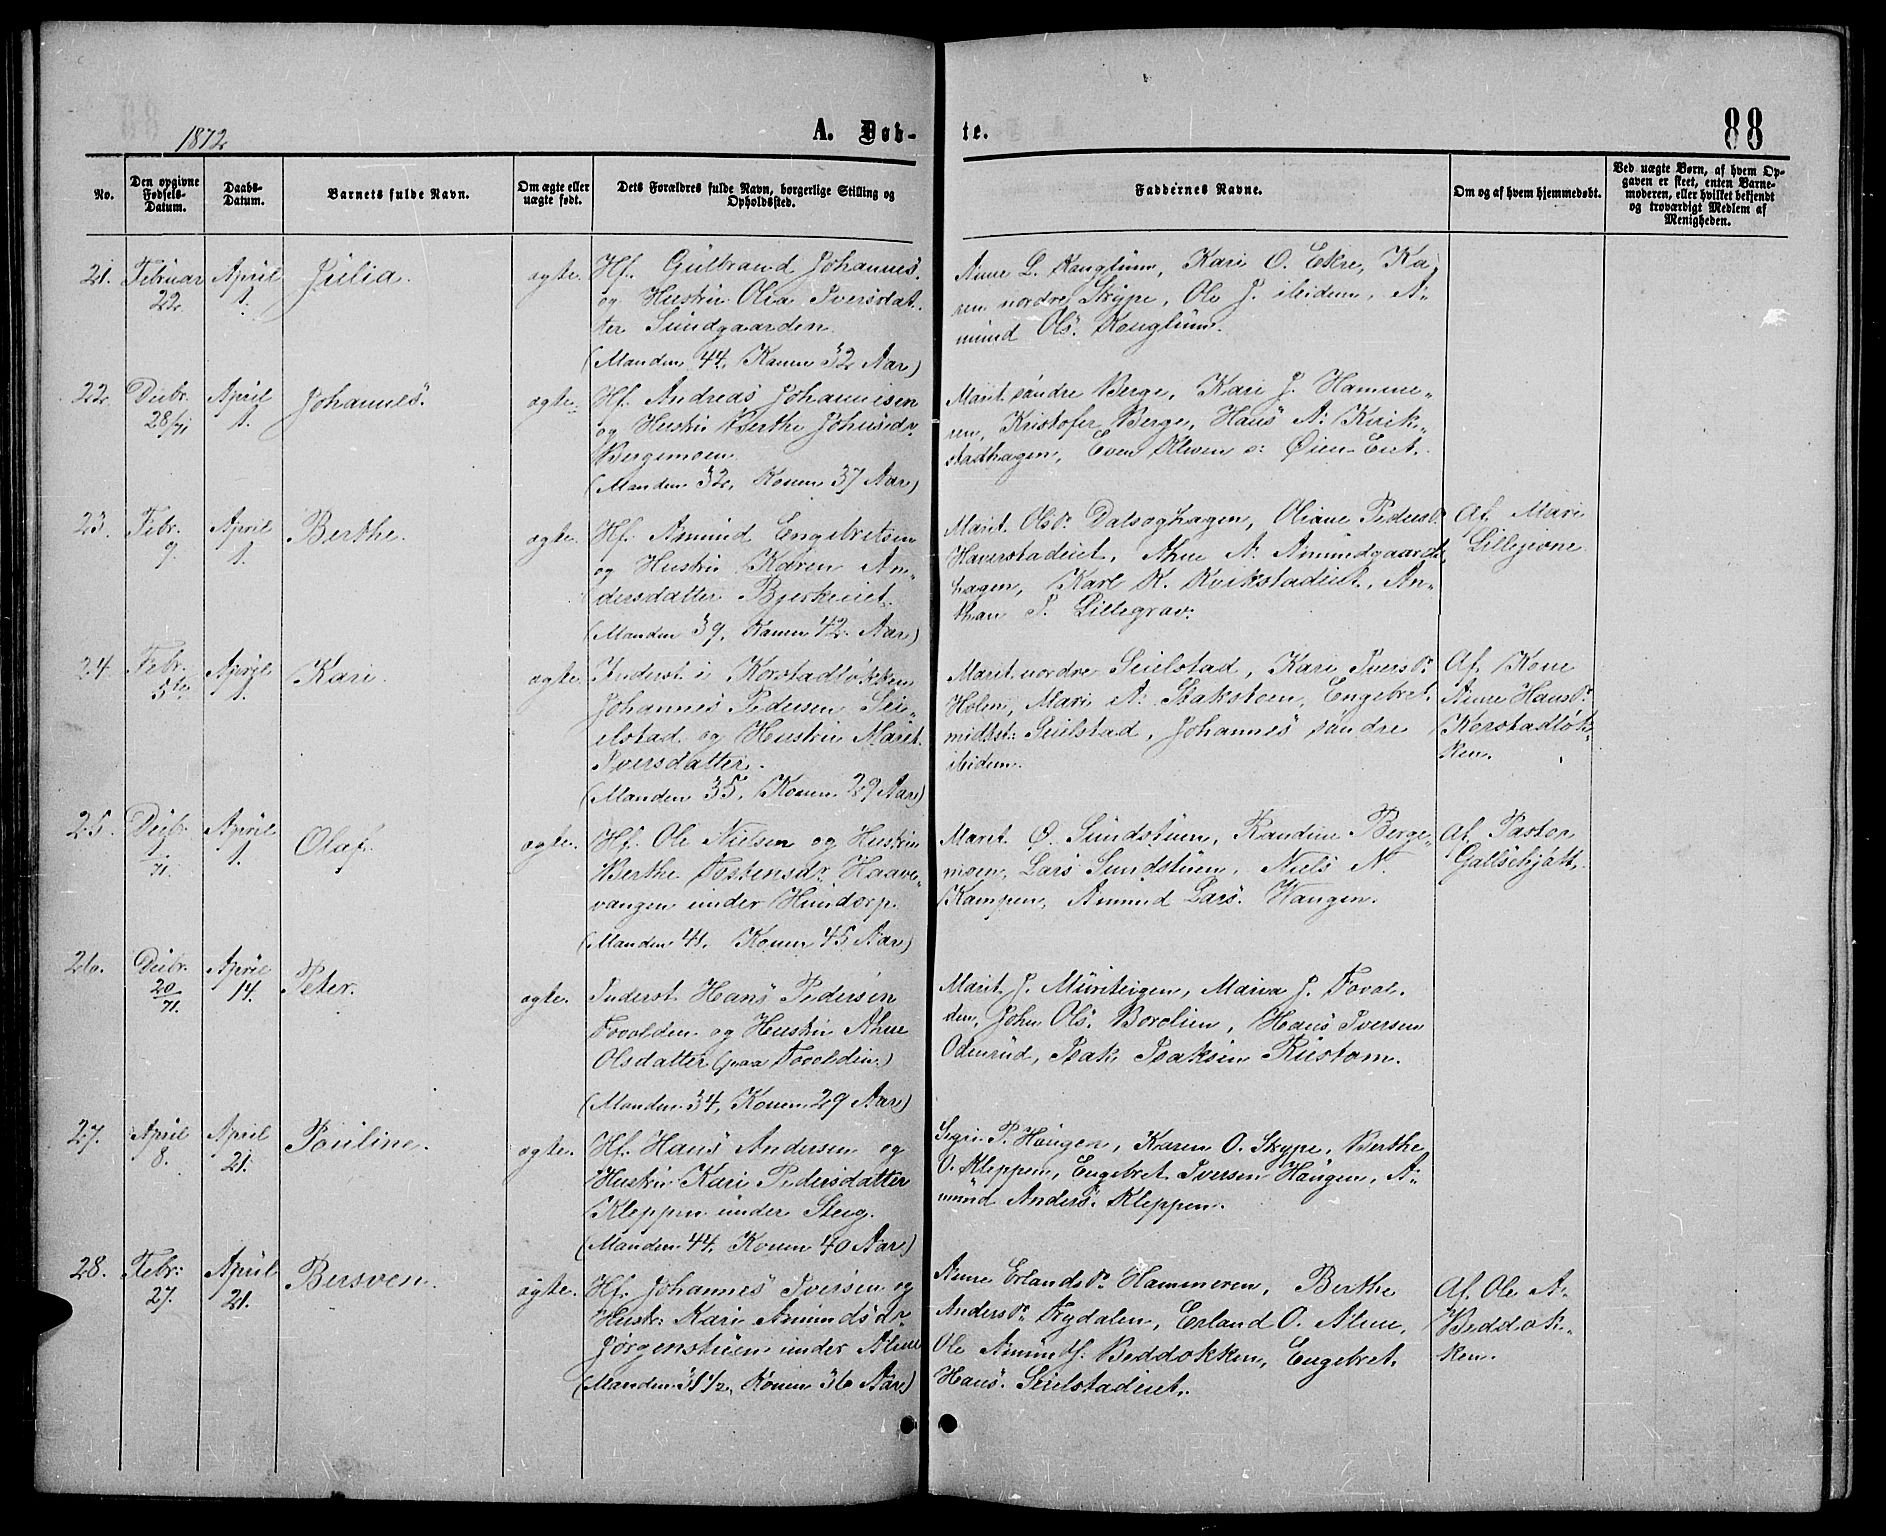 1872
A. Døb-
te.
88
No.
Den opgivne Fødsels-Datum.
Daabs-Datum.
Barnets fulde Navn.
Om ægte eller uægte født.
Dets Forældres fulde Navn, borgerlige Stilling og Opholdssted.
Faddernes Navne.
Om og af hvem hjemmedøbt.
Ved uægte Børn, af hvem Op-
gaven er skeet, enten Barne-
moderen, eller hvilket bekjendt
og troværdigt Medlem af
Menigheden.
21. Februar 22. April 1. Julia. ægte. Hf. Gulbrand Johannes.
og Hustru Olia Iversdat-
ter Sundgaarden.
(Manden 44, Konen 32 Aar)
Anne L. Konglum, Kari O. Ekre, Ka-
ren nordre Skype, Ole J. ibidem, A-
mund Ols. Konglum.
22. Decbr. 28/71 April 1. Johannes. ægte. Hf. Andreas Johannesen
og Hustru Berthe Johnsdr.
Bergemoen.
(Manden 32, Konen 37 Aar)
Marit søndre Berge, Kari J. Hamme-
ren, Kristofer Berge, Hans A. Kvik-
stadhagen, Even Kleven o: Øien Eiet.
23. Febr. 9. April 1. Berthe. ægte. Hf. Amund Engebretsen
og Hustru Karen An-
dersdatter Bjerkeiet.
(Manden 39, Konen 42 Aar)
Marit Olsdr. Dalseghagen, Oliane Pedersdr.
Haverstadeiet, Ahne A. Amundgaard-
hagen, Karl K. Kvikstadeiet, An-
than P. Lillegrav.
Af Mari
Lillejevne.
24. Febr. 5te April 1. Kari. ægte. Inderst i Korstadløkken
Johannes Pedersen Sei-
elstad og Hustru Marit
Iversdatter.
(Manden 35, Konen 29 Aar)
Marit nordre Seielstad, Kari Iversdr.
Holen, Mari A. Stakstoen, Engebret
midtst: Seielstad, Johannes søndre
ibidem.
Af Kone
Anne Hansdr.
Korstadløk-
ken.
25. Decbr. 1/71. April 1. Olaf. ægte. Hf. Ole Nielsen og Hustru
Berthe Tostensdr. Haave-
vangen under Hundorp.
(Manden 41. Konen 45 Aar)
Marit O. Sundstuen, Randine Berge-
moen, Lars Sundstuen, Niels N.
Kampen, Amund Lars. Wangen.
Af Pastor
Gallschjøtt.
26. Decbr. 20/71. April 14. Peter. ægte. Inderst Hans Pedersen
Fovolden og Hustru Ahne
Olsdatter (paa Fovolden.)
(Manden 34, Konen 29 Aar)
Marit J. Muriteigen, Maria J. Fovol-
den, John Ols. Borolien, Hans Iversen
Odenrud, Isak Isaksen Rustom.
27. April 8. April 21. Pauline. ægte. Hf. Hans Andersen og
Hustru Kari Pedersdatter
Kleppen under Steig.
(Manden 44, Konen 40 Aar)
Segri P. Haugen, Karen O. Skype, Berthe
O. Kleppen, Engebret Iversen Haugen, A-
mund Anders. Kleppen.
28. Febr: 27. April 21. Bersven. ægte. Hf. Johannes Iversen og
Hustr. Kari Amundsdr.
Jørgenstuen under Alme
(Manden 31 1/2, Konen 36 Aar)
Anne Erlandsdr. Hammeren, Berthe
Andersdr. Frydalen, Erland O. Alme,
Ole Amunds. Beddokken, Engebret
Hans. Seielstadeiet.
Af Ole A.
Beddok-
ken.